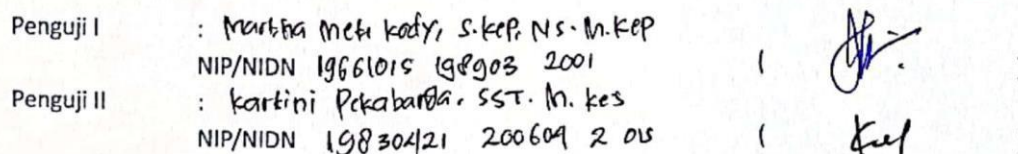 Penguji I : Martha Meti Kody, S.Kep, Ns. M.Kep
NIP/NIDN 19661015 198903 2001 (
Penguji II : Kartini Pekabanda. SST. M. Kes
NIP/NIDN 19830421 200604 2 015 (